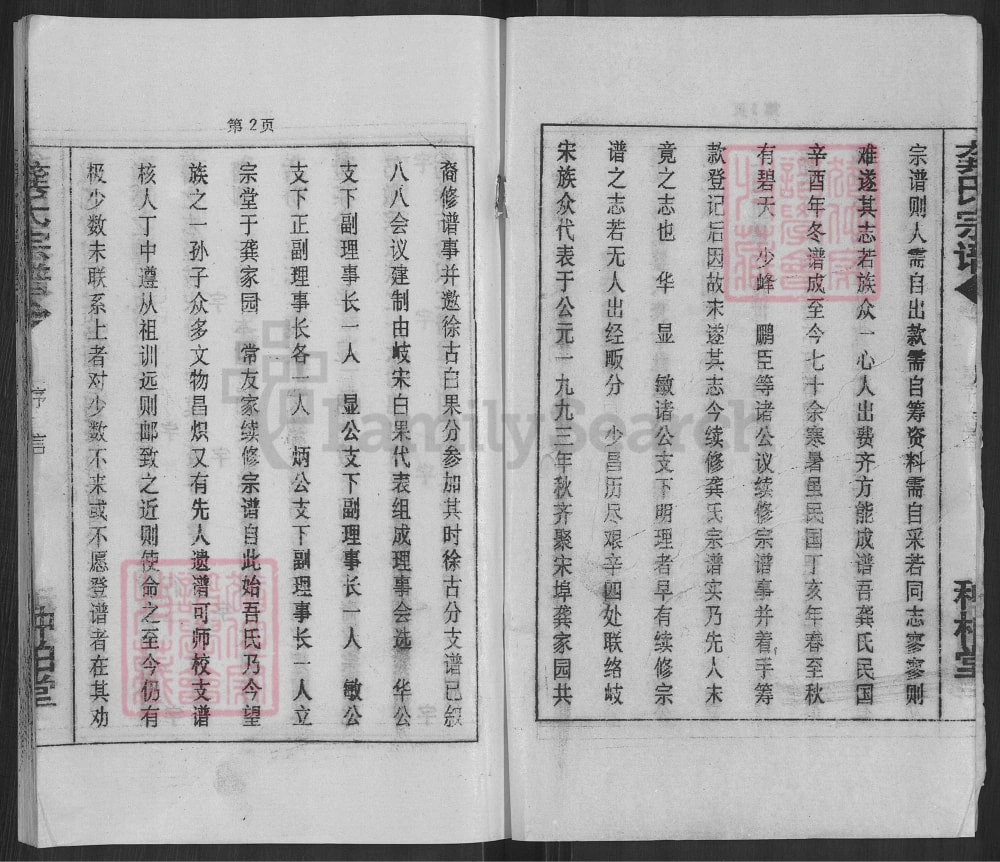 宗谱则人需自出款需自筹资料需自采若同志寥寥则
难遂其志若族众一心人出费齐方能成谱吾龚氏民国
辛酉年冬谱成至今七十余寒暑虽民国丁亥年春至秋
有碧天 少峰 鹏臣等诸公议续修宗谱事并着手筹
款登记后因故未遂其志今续修龚氏宗谱实乃先人未
竟之志也 华 显 敏诸公支下明理者早有续修宗
谱之志若无人出经贩分 少昌历尽艰辛四处联络岐
宋族众代表于公元一九九三年秋齐聚宋埠龚家园共
龚氏宗谱
第2页
裔修谱事并邀徐古白果分参加其时徐古分支谱已叙
八八会议建制由岐宋白果代表组成理事会选 华公
支下副理事长一人 显公支下副理事长一人 敏公
支下正副理事长各一人 炳公支下副理事长一人立
宗堂于龚家园 常友家续修宗谱自此始吾氏乃今望
族之一孙子众多文物昌炽又有先人遗谱可师校支谱
核人丁中遵从祖训远则邮致之近则使命之至今仍有
极少数未联系上者对少数不来或不愿登谱者在其劝
龚氏宗谱
序言
FamilySearch